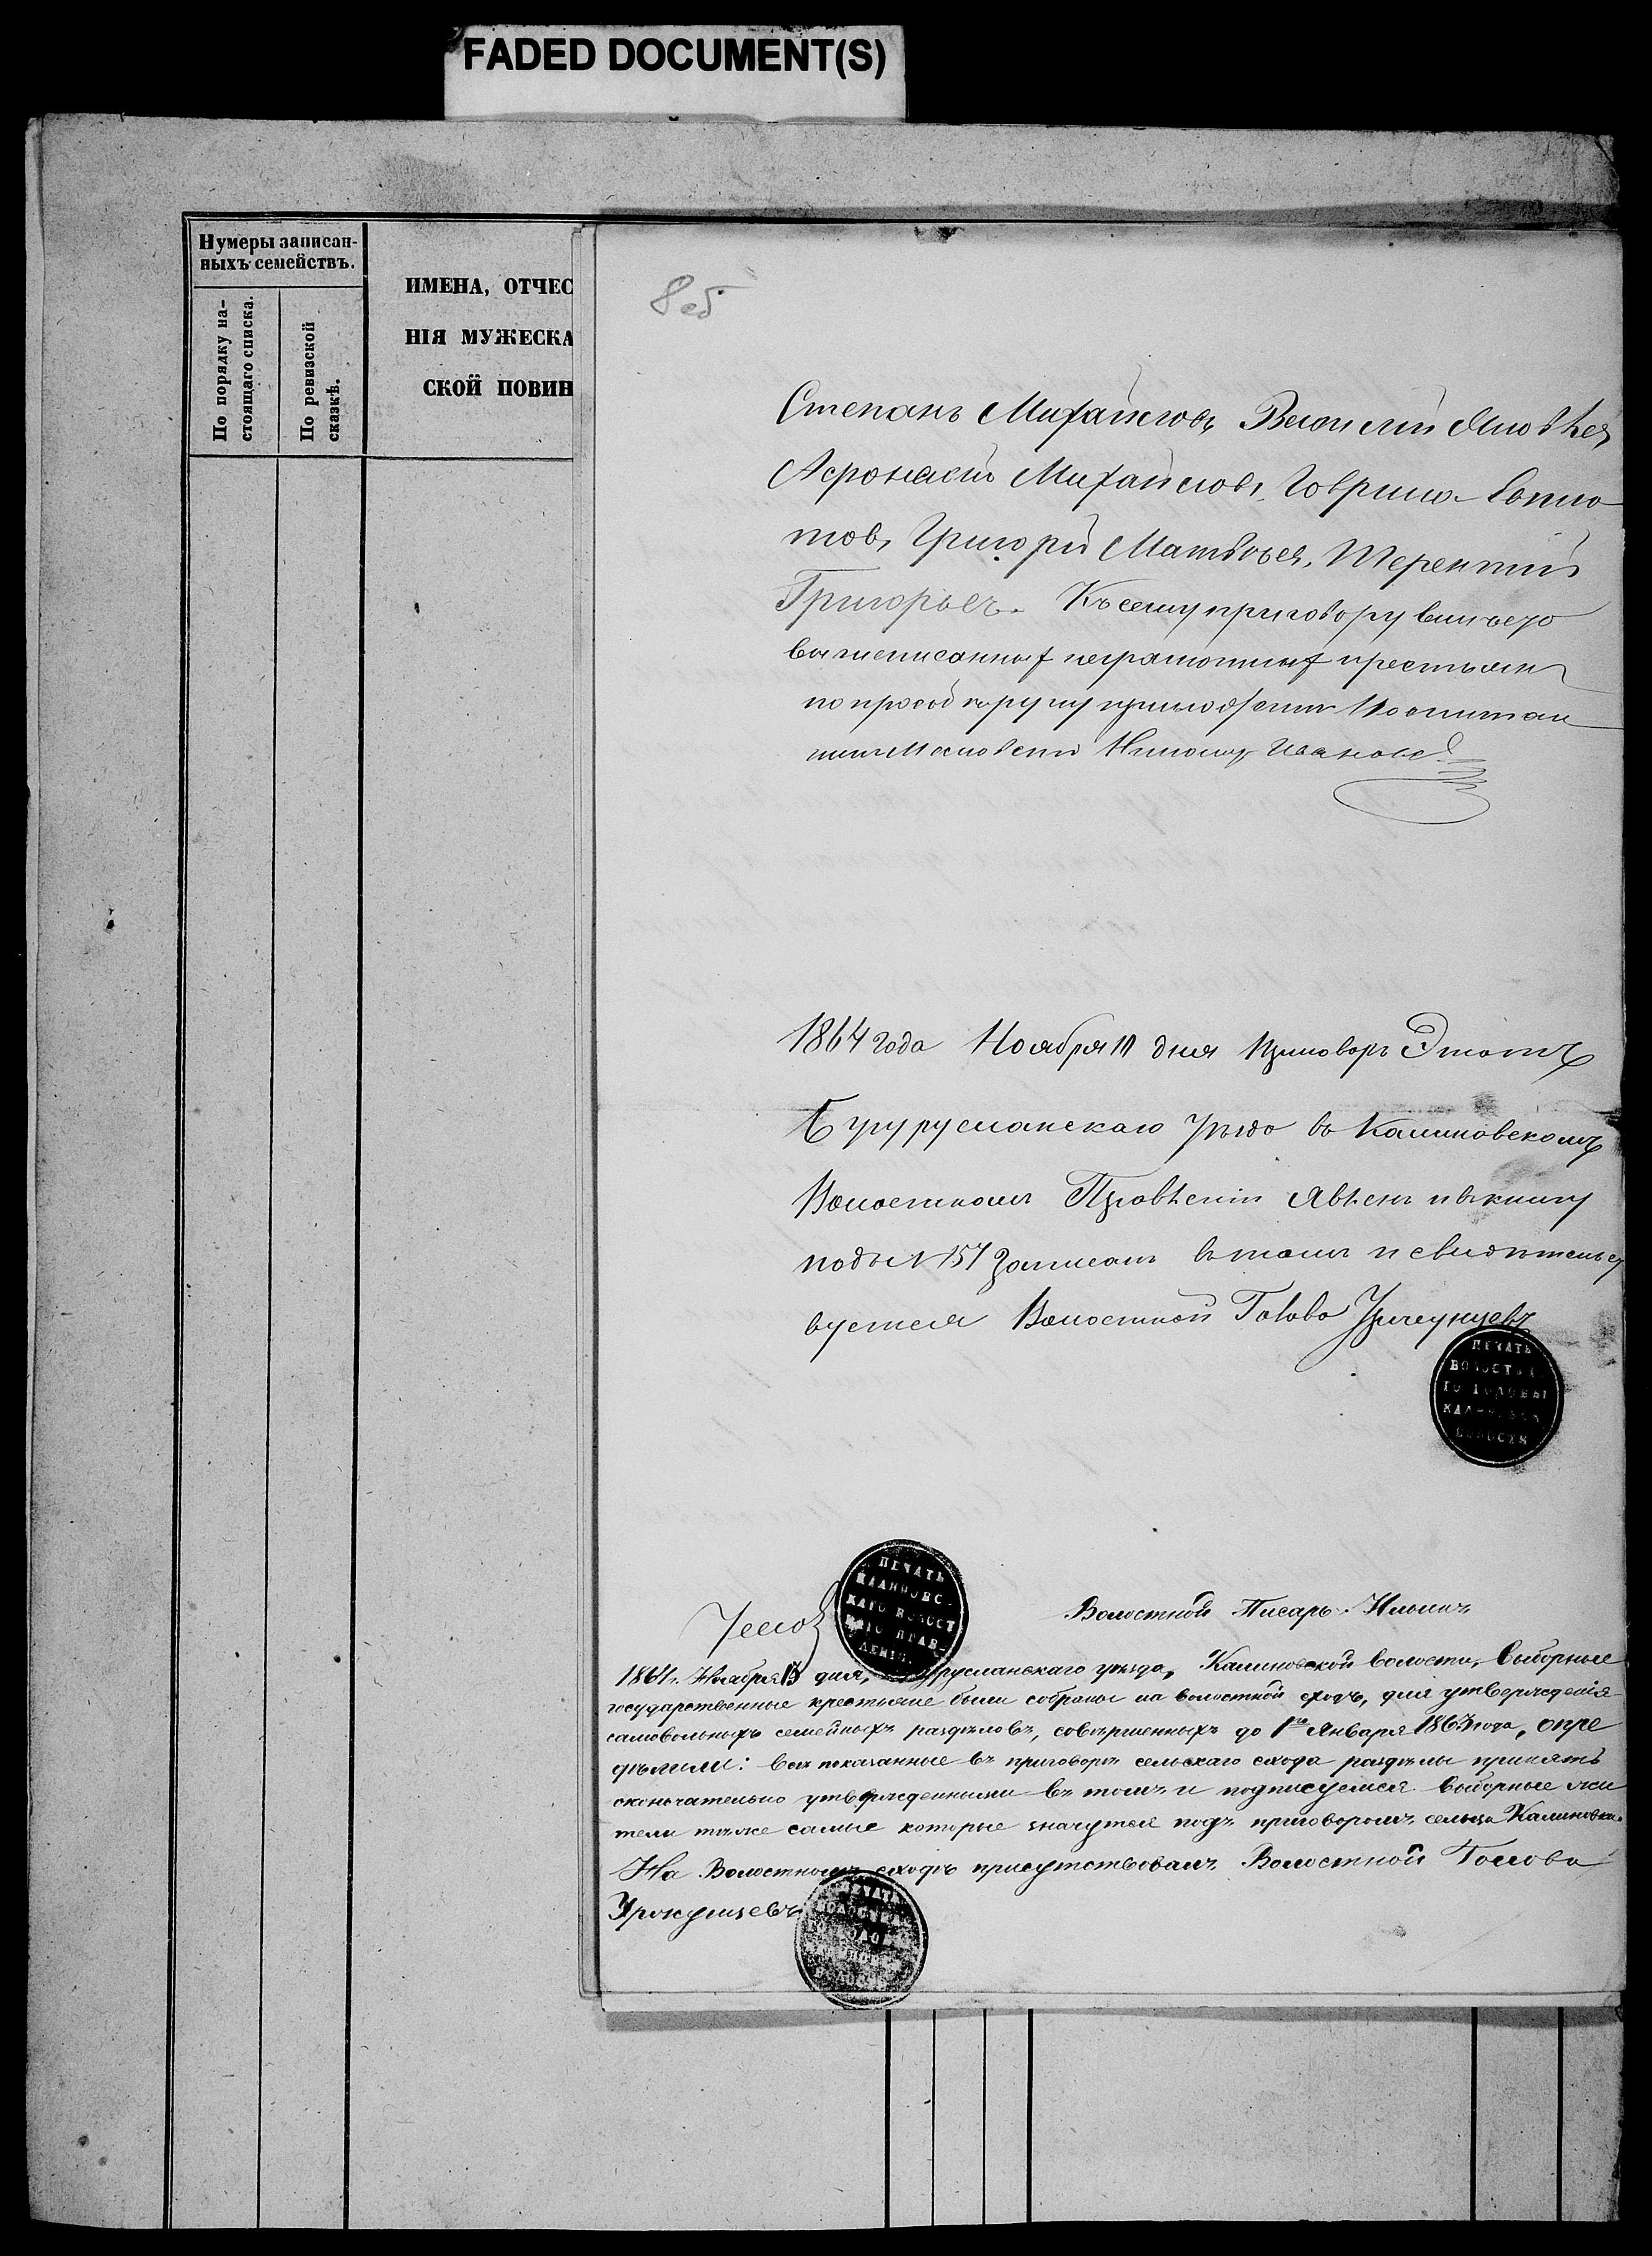 FADED DOCUMENT(S)
Нумеры записан-
ныхъ семействъ.
По порядку на-
стоящаго списка.
По ревизской
сказкѣ.
ИМЕНА, ОТЧЕС
НІЯ МУЖЕСКА
СКОЙ ПОВИН
8 об
Степанъ Михайловъ Василий
Михайловъ, Гаврила
Григорій Матвѣевъ, Терентий
Григорьевъ. Къ сему приговору вмѣсто
вышеписанныхъ неграмотныхъ крестьянъ
по просьбѣ руку приложилъ
Ивановъ
1864 года Ноября 11 дня Приговоръ Этотъ
Бугурусланскаго Уѣзда въ Калиновскомъ
Волостномъ Правленіи Явленъ и въ книгу
подъ N 157 Записанъ въ томъ и свидѣтельст
вуется Волостной Голова
ПЕЧАТЬ
ВОЛОСТНА
ГО ГОЛОВЫ
КАЛИНОВСК
ВОЛОСТИ
ПЕЧАТЬ
КАЛИНОВС-
КАГО ВОЛОСТ
НАГО ПРАВ-
ЛЕНІЯ.
Волостной Писарь Ильинъ
1864г. Ноября 13 дня, Бугурусланскаго уѣзда, Калиновской волости, Выборные
государственные крестьяне были собраны на волостной сходъ, для утвержденія
самовольныхъ семейныхъ раздѣловъ, совершенныхъ до 1го Января 1863 года, опре
дѣлили: всѣ показанные въ приговорѣ сельскаго схода раздѣлы принять
окончательно утвержденными въ томъ и подписуемся выборные жи
тели тѣ же самые которые значутся подъ приговоромъ сельца Калиновки.
На Волостномъ сходѣ присутствовалъ Волостной Голова